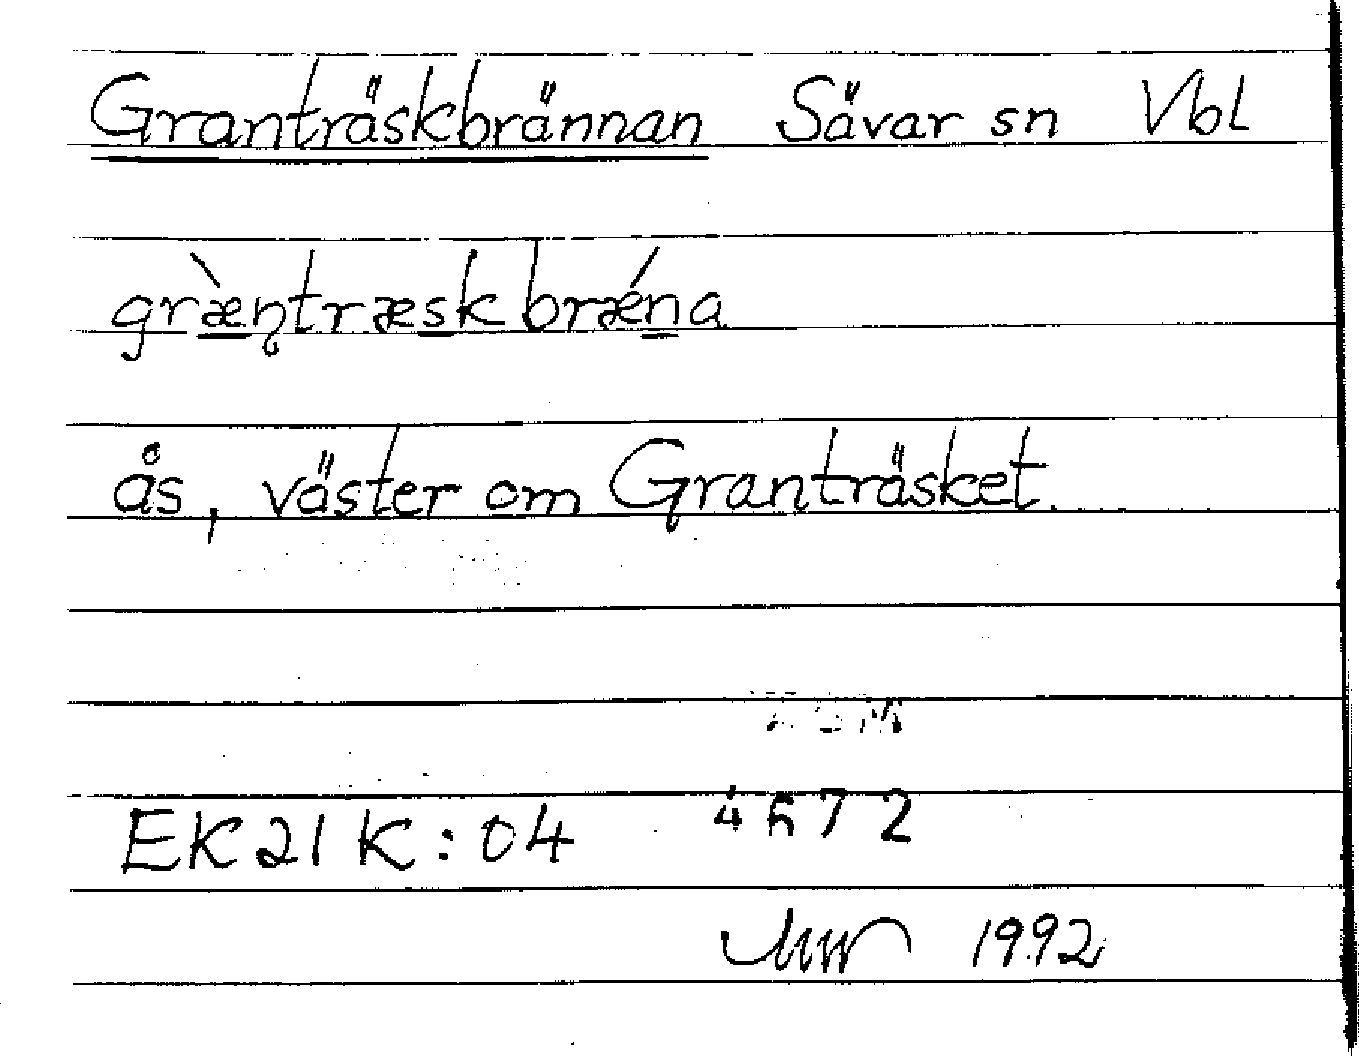 Granträskbrännan Sävar sn Vbl
græ̀ṇtræskbrǽna
ås, väster om Granträsket.
EK21K:04 4672
1992